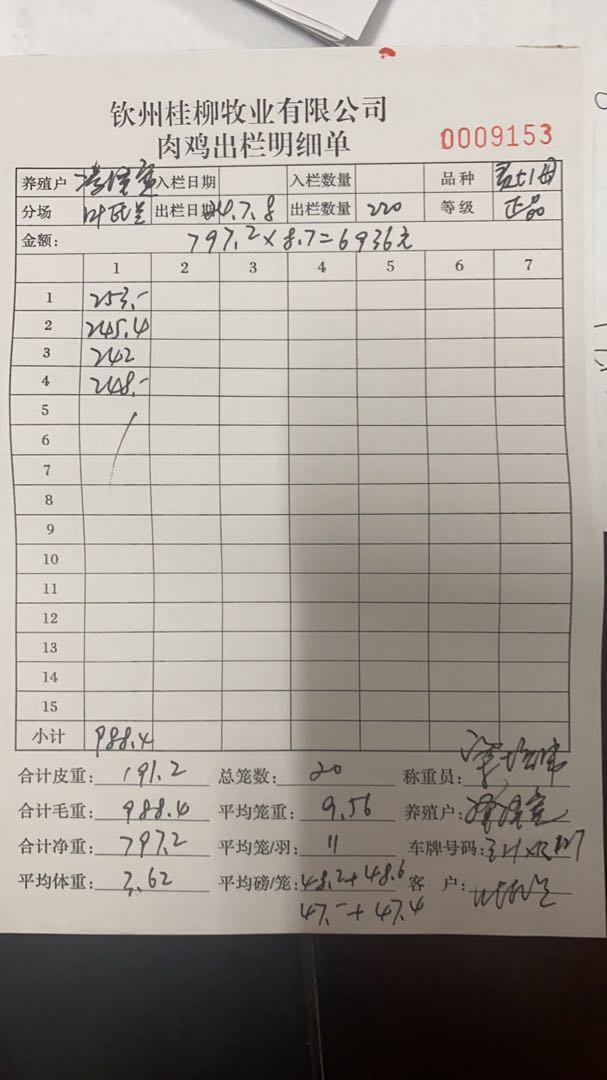 钦州桂柳牧业有限公司
肉鸡出栏明细单 0009153
养殖户 入栏日期 入栏数量 品种
分场 出栏日期 24.7.8 出栏数量 220 等级 正品
金额: 797.2×8.7=6936元
1 2 3 4 5 6 7
1 253.-
2 245.4
3 242
4 248.-
5
6
7
8
9
10
11
12
13
14
15
小计 988.4
合计皮重: 191.2 总笼数: 20 称重员:
合计毛重: 988.4 平均笼重: 9.56 养殖户:
合计净重: 797.2 平均笼/羽: 11 车牌号码:
平均体重: 3.62 平均磅/笼: 48.2+48.6 客 户:
47.-+47.4